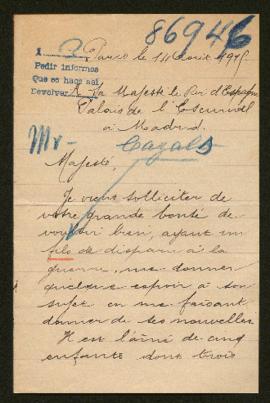 86946
Paris le 14 Août 1915
Pedir informes
Que se hace así
Devolver
A Sa Majesté le Roi d'Espagne
Palais de l'Escurial
à Madrid.
Mr Cazals
Majesté,
Je viens solliciter de
votre grande bonté de
vouloir bien, ayant un
fils de disparu à la
guerre, me donner
quelque espoir à son
sujet en me faisant
donner de ses nouvelles
Il est l'aîné de cinq
enfants dont trois